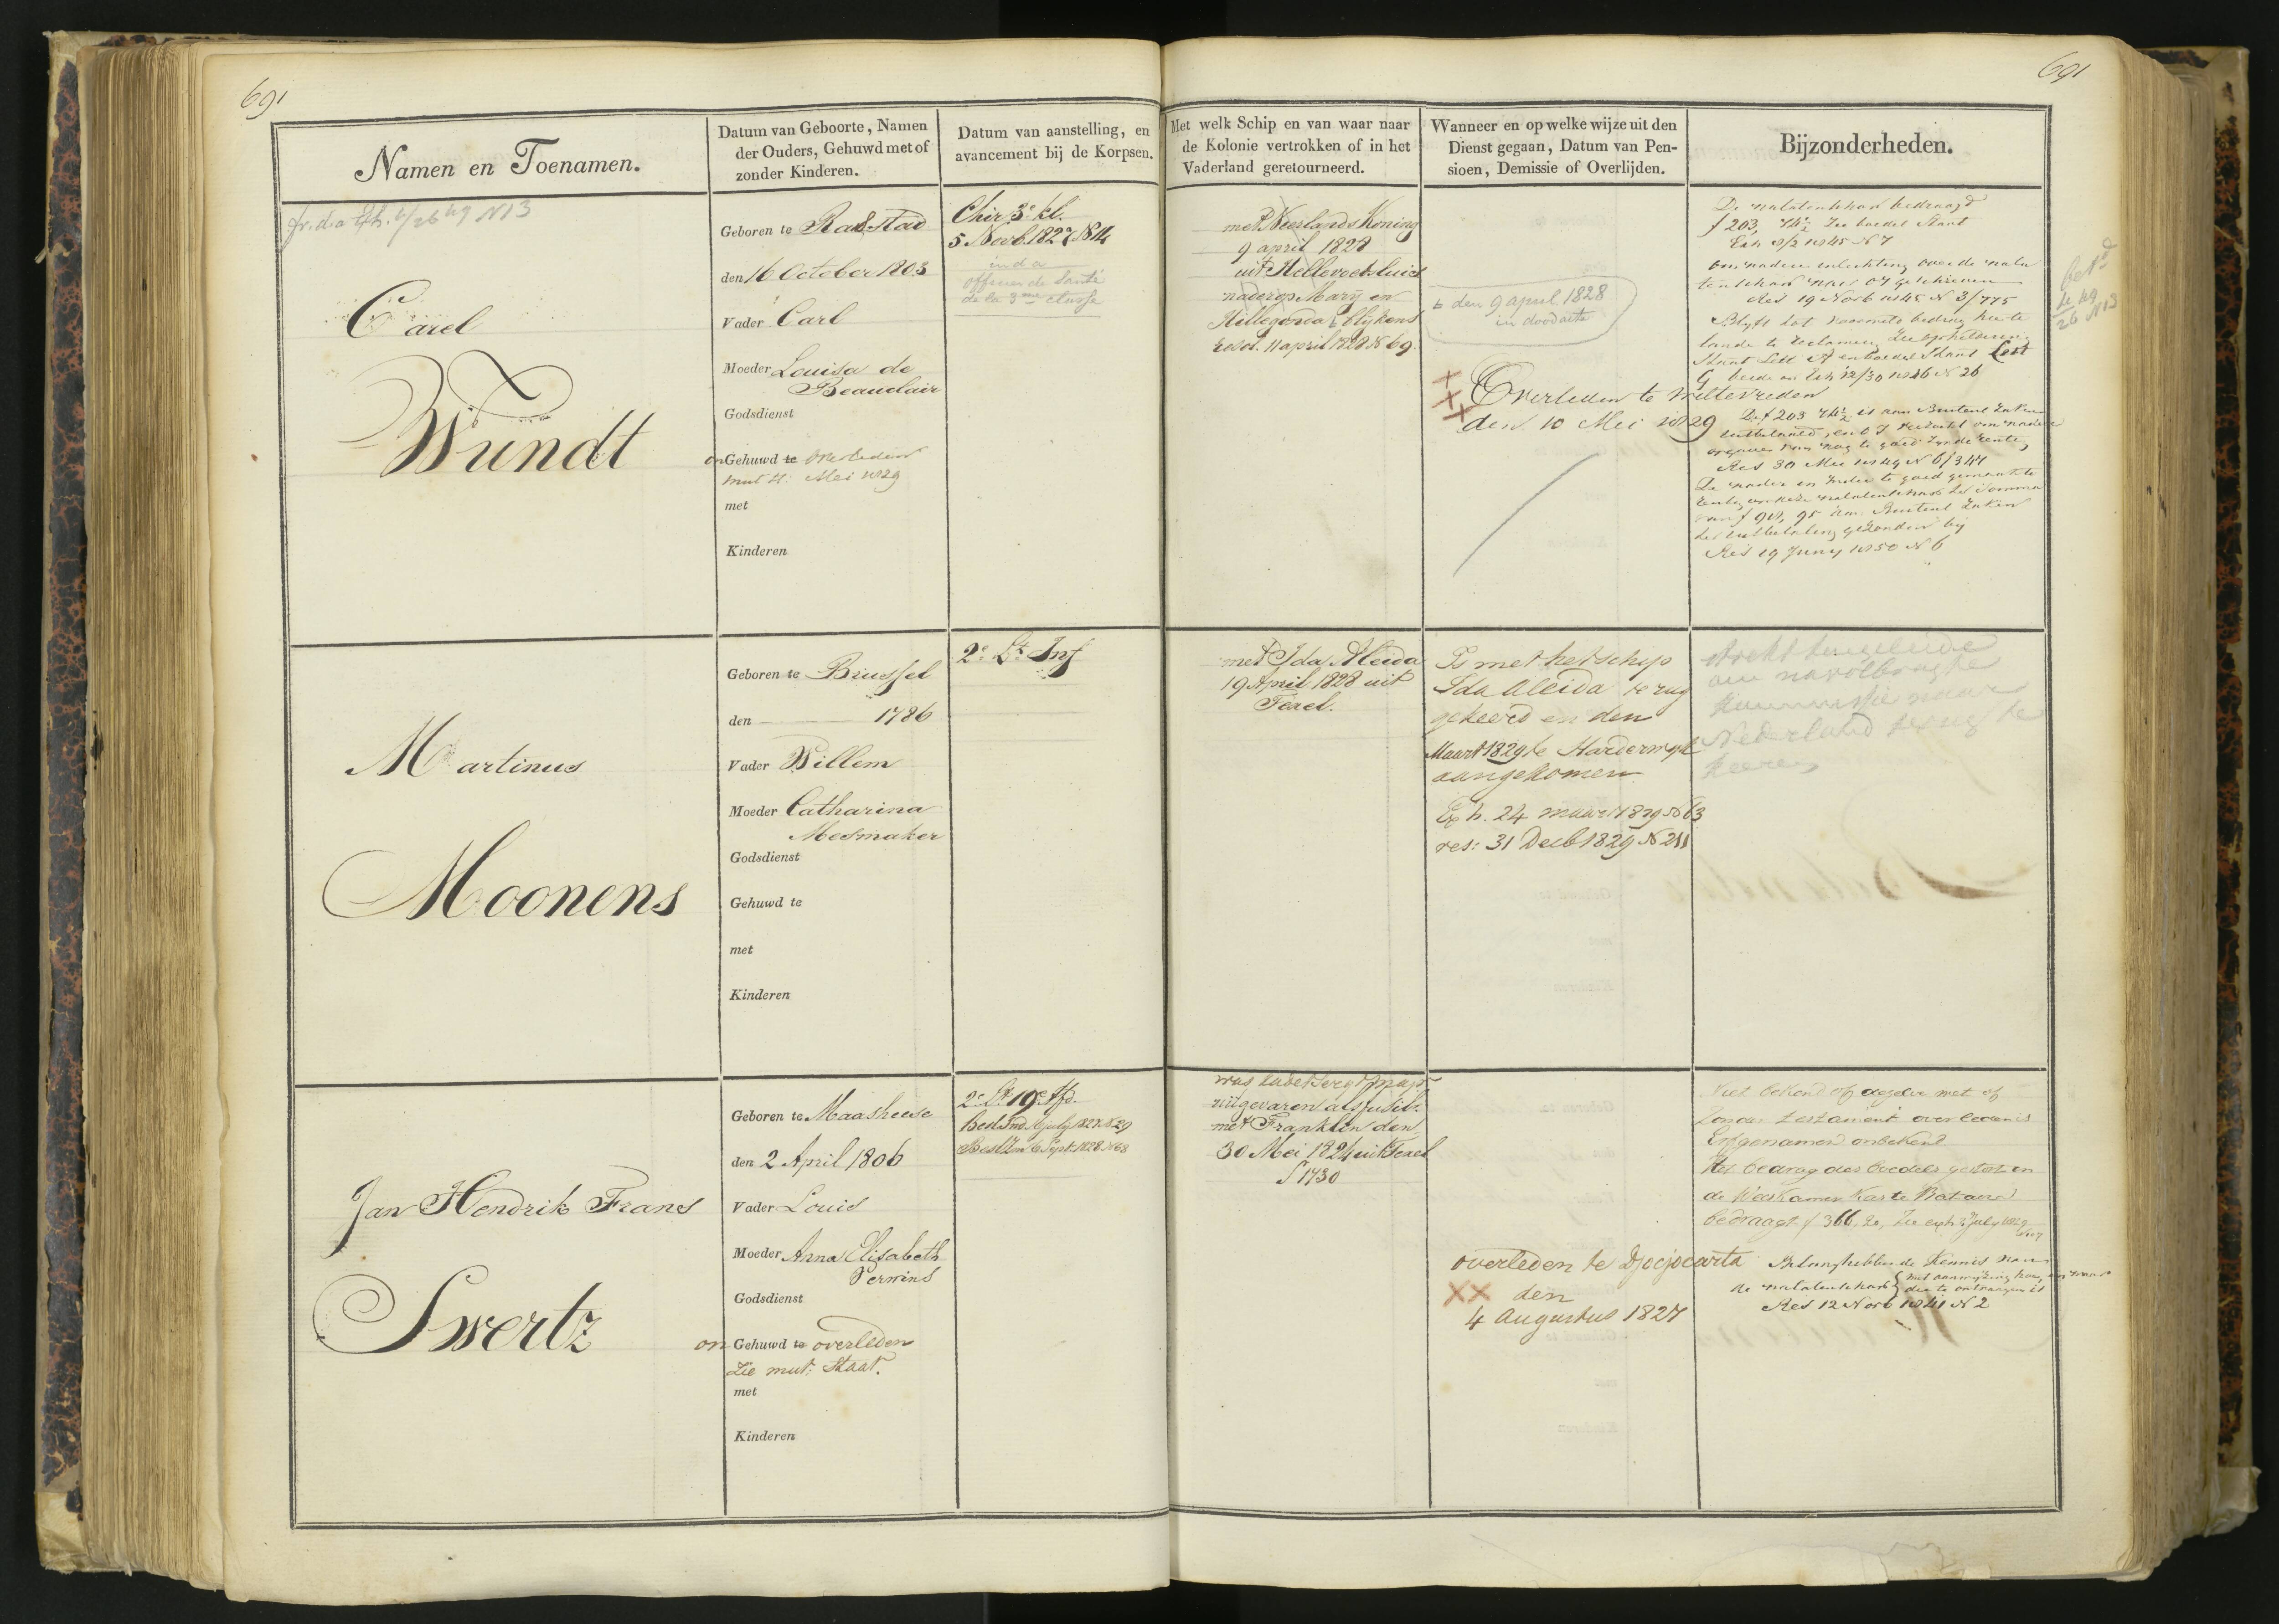 691
691
Namen en Toenamen.
Datum van Geboorte, Namen
der Ouders, Gehuwd met of
zonder Kinderen.
Datum van aanstelling, en
avancement bij de Korpsen.
Met welk Schip en van waar naar
de Kolonie vertrokken of in het
Vaderland geretourneerd.
Wanneer en op welke wijze uit den
Dienst gegaan, Datum van Pen-
sioen, Demissie of Overlijden.
Bijzonderheden.
Carel
Wundt
Geboren te Radstad
den 16 October 1803
Vader Carl
Moeder Louisa de
Beauclair
Godsdienst
on Gehuwd te overleden
mut st: Mei 1829
met
Kinderen
Chir 3e kl.
5 Novb. 1827
officier de Santé
de la 3me classe
met Neerlands Koning
9 april 1828
uit Hellevoetsluis
nader op Mary en
Hillegonda blykens
11 april 1828 N 69.
den 9 april 1828
in doodacte
Overleden te Weltevreden
den 10 Mei 1829
De nalatenschap bedraagd
f 203, 74½ Zie boedel Staat
Exh 9/2 1845 N 7
om nadere inlichting over de nala
tenschap naar geschreven
Res 19 Novb 1845 N 3/775
Blyft tot
lande te reclameren
Staat Lett A en boedel Staat Lett
G beide in Exh 12/30 1846 N 26
De f 203 74½ is aan Buitenl Zaken
uitbetaald,
Res 30 Mei 1849 N 6/347
van f 98, 95 aan Buitenl Zaken
ter uitbetaling gezonden by
Res 19 Juny 1850 N 6
Martinus
Moonens
Geboren te Brussel
den 1786
Vader Willem
Moeder Catharina
Mesmaker
Godsdienst
Gehuwd te
met
Kinderen
2e Lt Inf
met Ida Aleida
19 April 1828 uit
Texel.
Is met het schip
Ida Aleida terug
gekeerd en den
Maart 1829 te Harderwyk
aangekomen
Exh. 24 maart 1829 N 63
res: 31 Decb 1829 N 211
strekt ten geleide
om na volbragte
kommissie naar
Nederland terug te
keeren
Jan Hendrik Frans
Swertz
Geboren te Maasheese
den 2 April 1806
Vader Louis
Moeder Anna Elisabeth
Perwins
Godsdienst
on Gehuwd te overleden
zie mut: Staat.
met
Kinderen
2e Lt 19e Afd.
Besl. Ind. July 1827 N 29
Besl. 6 Sept. 1828 N 68
was Sergt majr
uitgevaren als fusilr.
met Franklin den
30 Mei 1824 uit Texel
S 1730
overleden te Djocjocarta
den
4 Augustus 1827
Niet bekend of dezelve met of
zonder testament overleden is
Erfgenamen onbekend
Het bedrag des boedels gestort in
de Weeskamer Kas te Batavia
bedraagt f 366, 20, Zie exh 3 July 1829
Belanghebbende Kennis van
de nalatenschap met aanwyzing hoe, en waar
die te ontvangen is
Res 12 Novb 1841 N 2